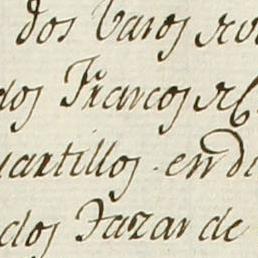 dos Varos
dos Frarcos
uartillos. en di
dos Jazar de